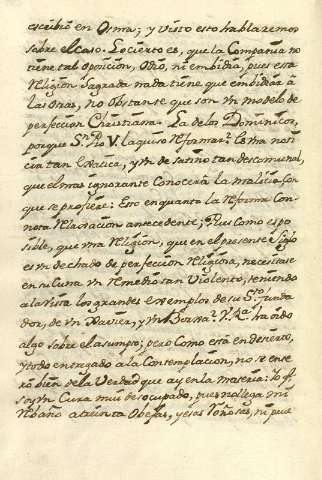 escribiô en Osma; y visto esto hablaremos
sobre el caso. Lo cierto es, que la Compañia no
tiene tal oposicion, Odio, ni embidia, pues esta
Religion Sagrada nada tiene que embidiar à
las otras, no obstante que son un modelo de
perfeccion Christiana. La de los Dominicos,
porque S.n Pio V. la quiso Reformar? Es una noti
cia tan, y un desatino tan descomunal,
que el mas ignorante Conocerà la malicia con
que se profiere: Esto en quanto la Reforma Con
nota Relaxacion antecedente; Pues como es po
sible, que una Religion, que en el presente Siglo
es un dechado de perfeccion Religiosa, necesitase
en su Cuna un Remedio tan Violento, teniendo
a la vista los grandes exemplos de su S.to Funda
dor, de un Xavier, y un Borja? V. R.a ha oido
algo sobre el asumpto; pero Como està en desierto,
y todo entregado a la Contemplacion, no se ente
rò bien de la Verdad que ay en la materia: Yo q.e
soy un Cura mui desocupado, pues no llega mi
Rebaño a treinta Obejas, y esas Roñosas, ni pue